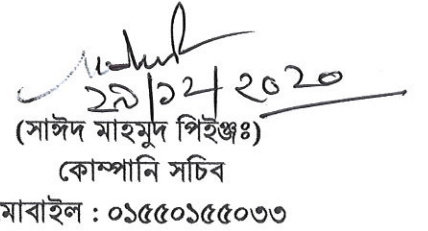 ২৯/১২/২০২০
(সাঈদ মাহমুদ পিইঞ্জঃ)
কোম্পানি সচিব
মোবাইল : ০১৫৫০১৫৫০৩৩